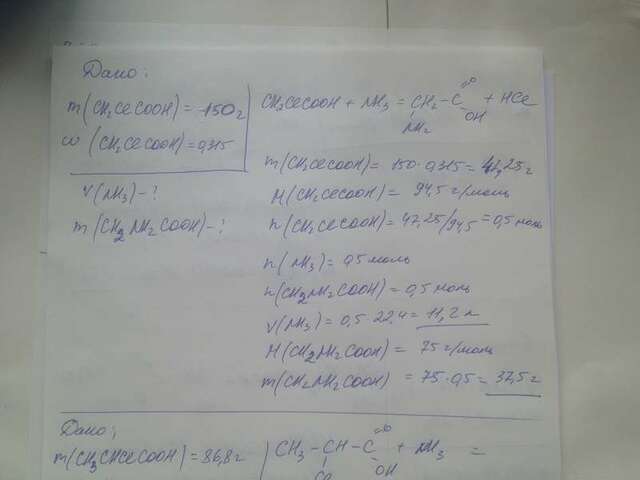 Дано:
m(CH₂ClCOOH) = 150 г
w (CH₂ClCOOH) = 0,315
V(NH₃) - ?
m(CH₂NH₂COOH) - ?
CH₂ClCOOH + NH₃ = CH₂ - C =O OH + HCl
NH₂
m(CH₂ClCOOH) = 150 · 0,315 = 47,25 г
M(CH₂ClCOOH) = 94,5 г/моль
n(CH₂ClCOOH) = 47,25/94,5 = 0,5 моль
n(NH₃) = 0,5 моль
n(CH₂NH₂COOH) = 0,5 моль
V(NH₃) = 0,5 · 22,4 = 11,2 л
M(CH₂NH₂COOH) = 75 г/моль
m(CH₂NH₂COOH) = 75 · 0,5 = 37,5 г
Дано:
m(CH₃CHClCOOH) = 86,8 г
CH₃ - CH - C =O OH + NH₃ =
Cl